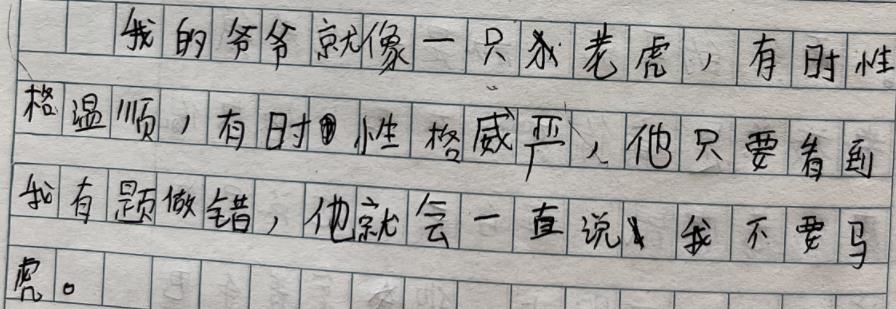 我的爷爷就像一只老虎，有时性
格温顺，有时性格威严，他只要看到
我有题做错，他就会一直说我不要马
虎。